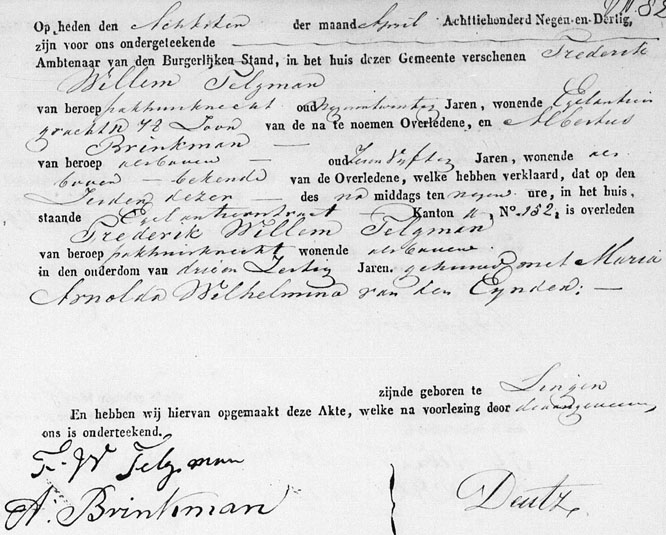 82
Op heden den Achtsten der maand April Achttiehonderd Negen-en-Dertig,
zijn voor ons ondergeteekende
Ambtenaar van den Burgerlijken Stand, in het huis dezer Gemeente verschenen Frederik
Willem Telgman
van beroep pakhuisknecht oud Jaren, wonende Egelantiers
gracht N 72 Zoon van de na te noemen Overledene, en Albertus
Brinkman
van beroep als boven oud Zeven Vyftig Jaren, wonende als
boven bekende van de Overledene, welke hebben verklaard, dat op den
Zesden dezer des na middags ten negen ure, in het huis,
staande Kanton N°. 152, is overleden
Frederik Willem Telgman
van beroep pakhuisknecht wonende als boven
in den ouderdom van drieen Zestig Jaren, gehuwd met Maria
Arnolda Wilhelmina van den Eynden;
zijnde geboren te Lingen
En hebben wij hiervan opgemaakt deze Akte, welke na voorlezing door de aangevers,
ons is onderteekend.
F. W Telgman
A. Brinkman Deutz